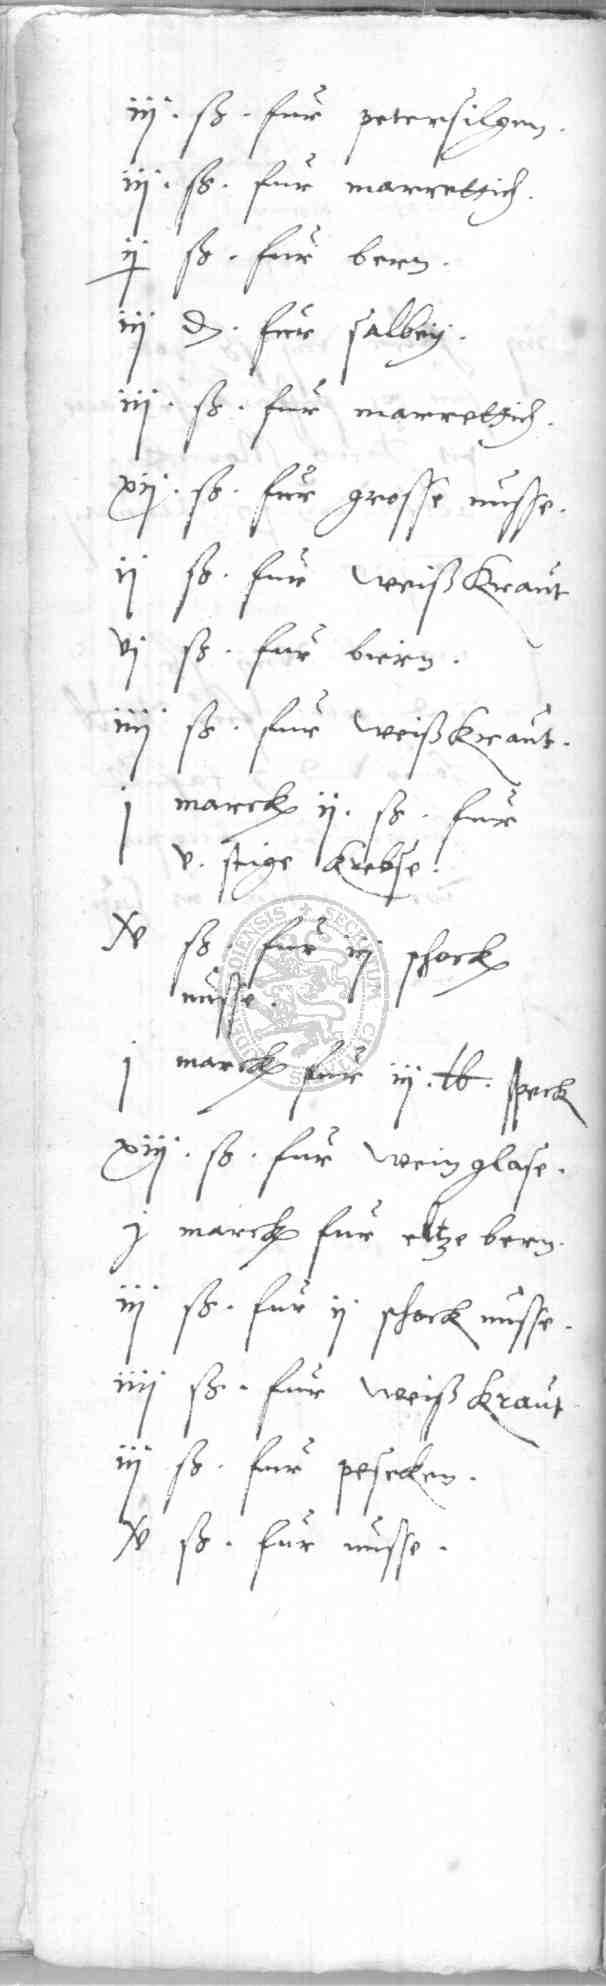 iij. ß. fur petersilgen.
iij. ß. fur marrettich.
ij ß. fur bern.
iij d. fur salbeij.
iij. ß. fur marrettich.
xij. ß. fur grosse nusse.
ij ß. fur weißkraut
vj ß. fur biern.
iiij ß. fur weißkraut.
j marck ij. ß. fur
v. stige krebse.
xv ß. fur iij schock
nusse.
j marck fur iij. lb. speck
xiij. ß. fur weinglase.
j marck fur eltze bern.
iij ß. fur ij schock nusse.
iiij ß. fur weißkraut
iij ß. fur pescken.
xv ß. fur nusse.